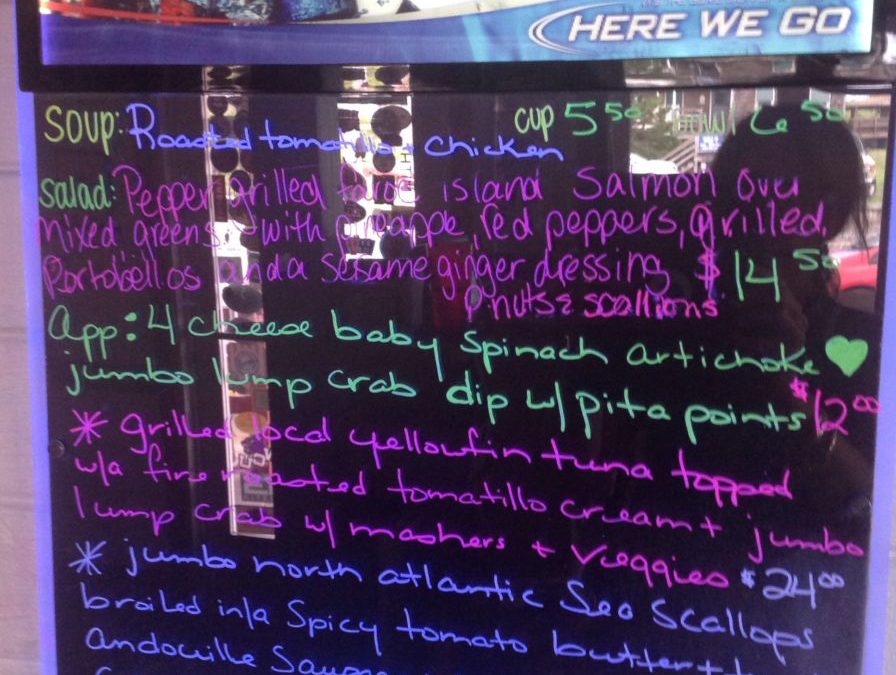 HERE WE GO
Soup: Roasted tomatillo + chicken cup 5 50 bowl 6 50
Salad: Pepper grilled faroe island Salmon Over
mixed greens with pineapple, red peppers, grilled
Portobellos and a sesame ginger dressing $14 50
Pnuts & scallions
App: 4 cheese baby spinach artichoke
jumbo lump crab dip w/ pita points $12 00
* grilled local yellowfin tuna topped
w/a fire roasted tomatillo cream + jumbo
lump crab w/ mashers + veggies $24 00
* jumbo north atlantic Sea Scallops
broiled in/a Spicy tomato butter +
andouille